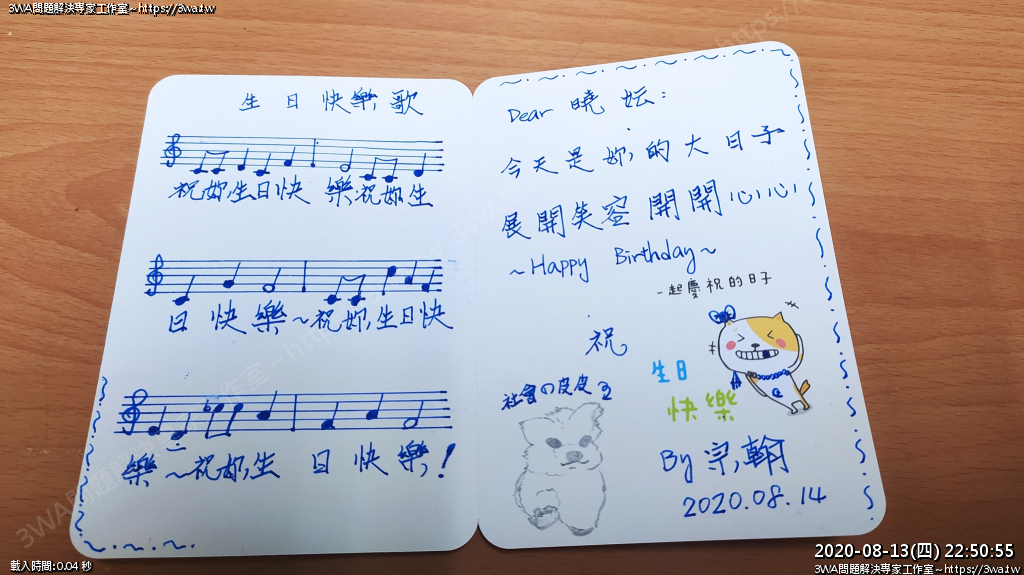 3WA問題解決專家工作室~https://3wa.tw
生日快樂歌
祝妳生日快 樂祝妳生
日 快 樂~祝妳生日快
樂~祝妳生 日 快 樂!
Dear 曉妘:
今天是妳的大日子
展開笑容 開開心心
~Happy Birthday~
一起慶祝的日子
祝
生日
快樂
社會の皮皮
By 宗翰
2020.08.14
2020-08-13(四) 22:50:55
載入時間:0.04 秒
3WA問題解決專家工作室~https://3wa.tw